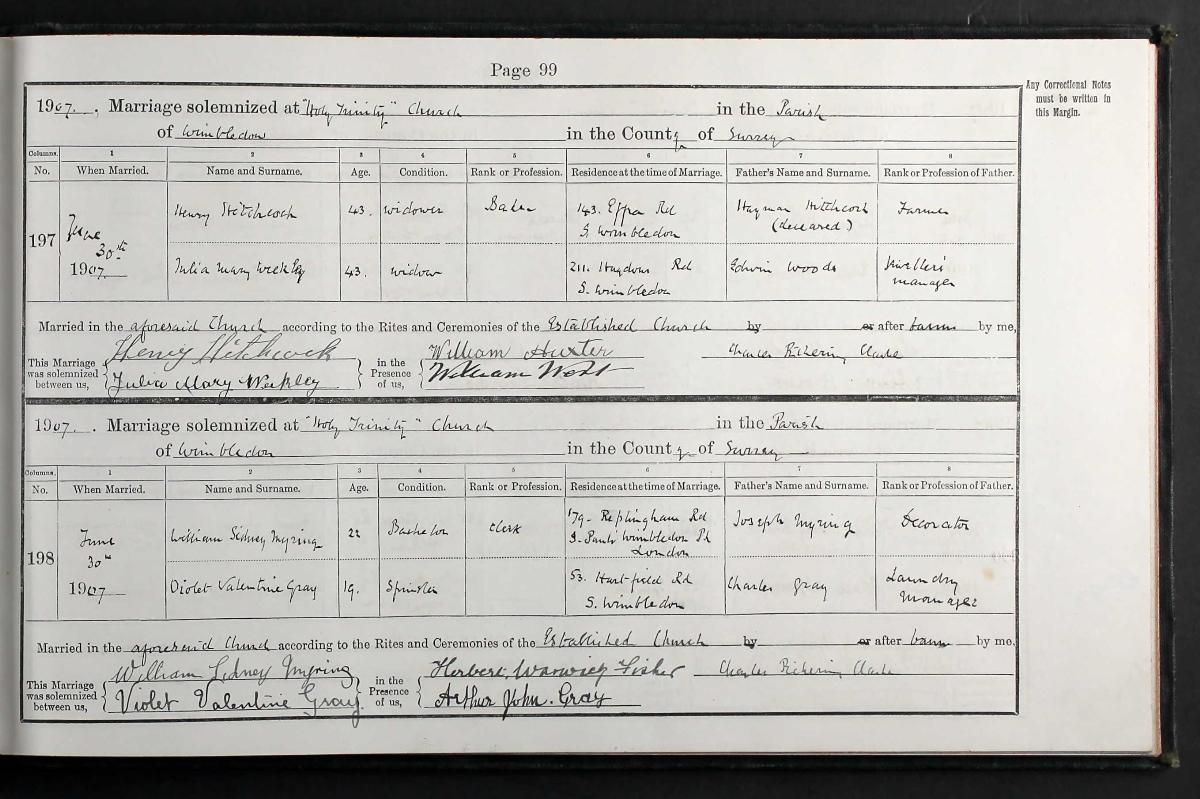 Page 99
Any Correctional Notes
must be written in
this Margin.
1907. Marriage solemnized at "Holy Trinity" Church in the Parish
of Wimbledon in the County of Surrey
Columns. 1 2 3 4 5 6 7 8
No. When Married. Name and Surname. Age. Condition. Rank or Profession. Residence at the time of Marriage. Father's Name and Surname. Rank or Profession of Father.
197 June 30th 1907
Henry Hitchcock 43. Widower Baker 143. Effra Rd S. Wimbledon Hayman Hitchcock (deceased) Farmer
Julia Mary Weekley 43. Widow 211. Haydons Rd S. Wimbledon Edwin Woods Jewellers' manager
Married in the aforesaid Church according to the Rites and Ceremonies of the Established Church by or after banns by me,
Henry Hitchcock William Huxter Charles Pickering Clarke
This Marriage was solemnized between us, in the Presence of us,
Julia Mary Weekley William West
1907. Marriage solemnized at "Holy Trinity" Church in the Parish
of Wimbledon in the County of Surrey
Columns. 1 2 3 4 5 6 7 8
No. When Married. Name and Surname. Age. Condition. Rank or Profession. Residence at the time of Marriage. Father's Name and Surname. Rank or Profession of Father.
198 June 30th 1907
William Sidney Myring 22 Bachelor Clerk 179. Replingham Rd S. Pauls Wimbledon Pk London Joseph Myring Decorator
Violet Valentine Gray 19. Spinster 53. Hartfield Rd S. Wimbledon Charles Gray Laundry Manager
Married in the aforesaid Church according to the Rites and Ceremonies of the Established Church by or after banns by me,
William Sidney Myring Herbert Warwick Fisher Charles Pickering Clarke
This Marriage was solemnized between us, in the Presence of us,
Violet Valentine Gray Arthur John. Gray